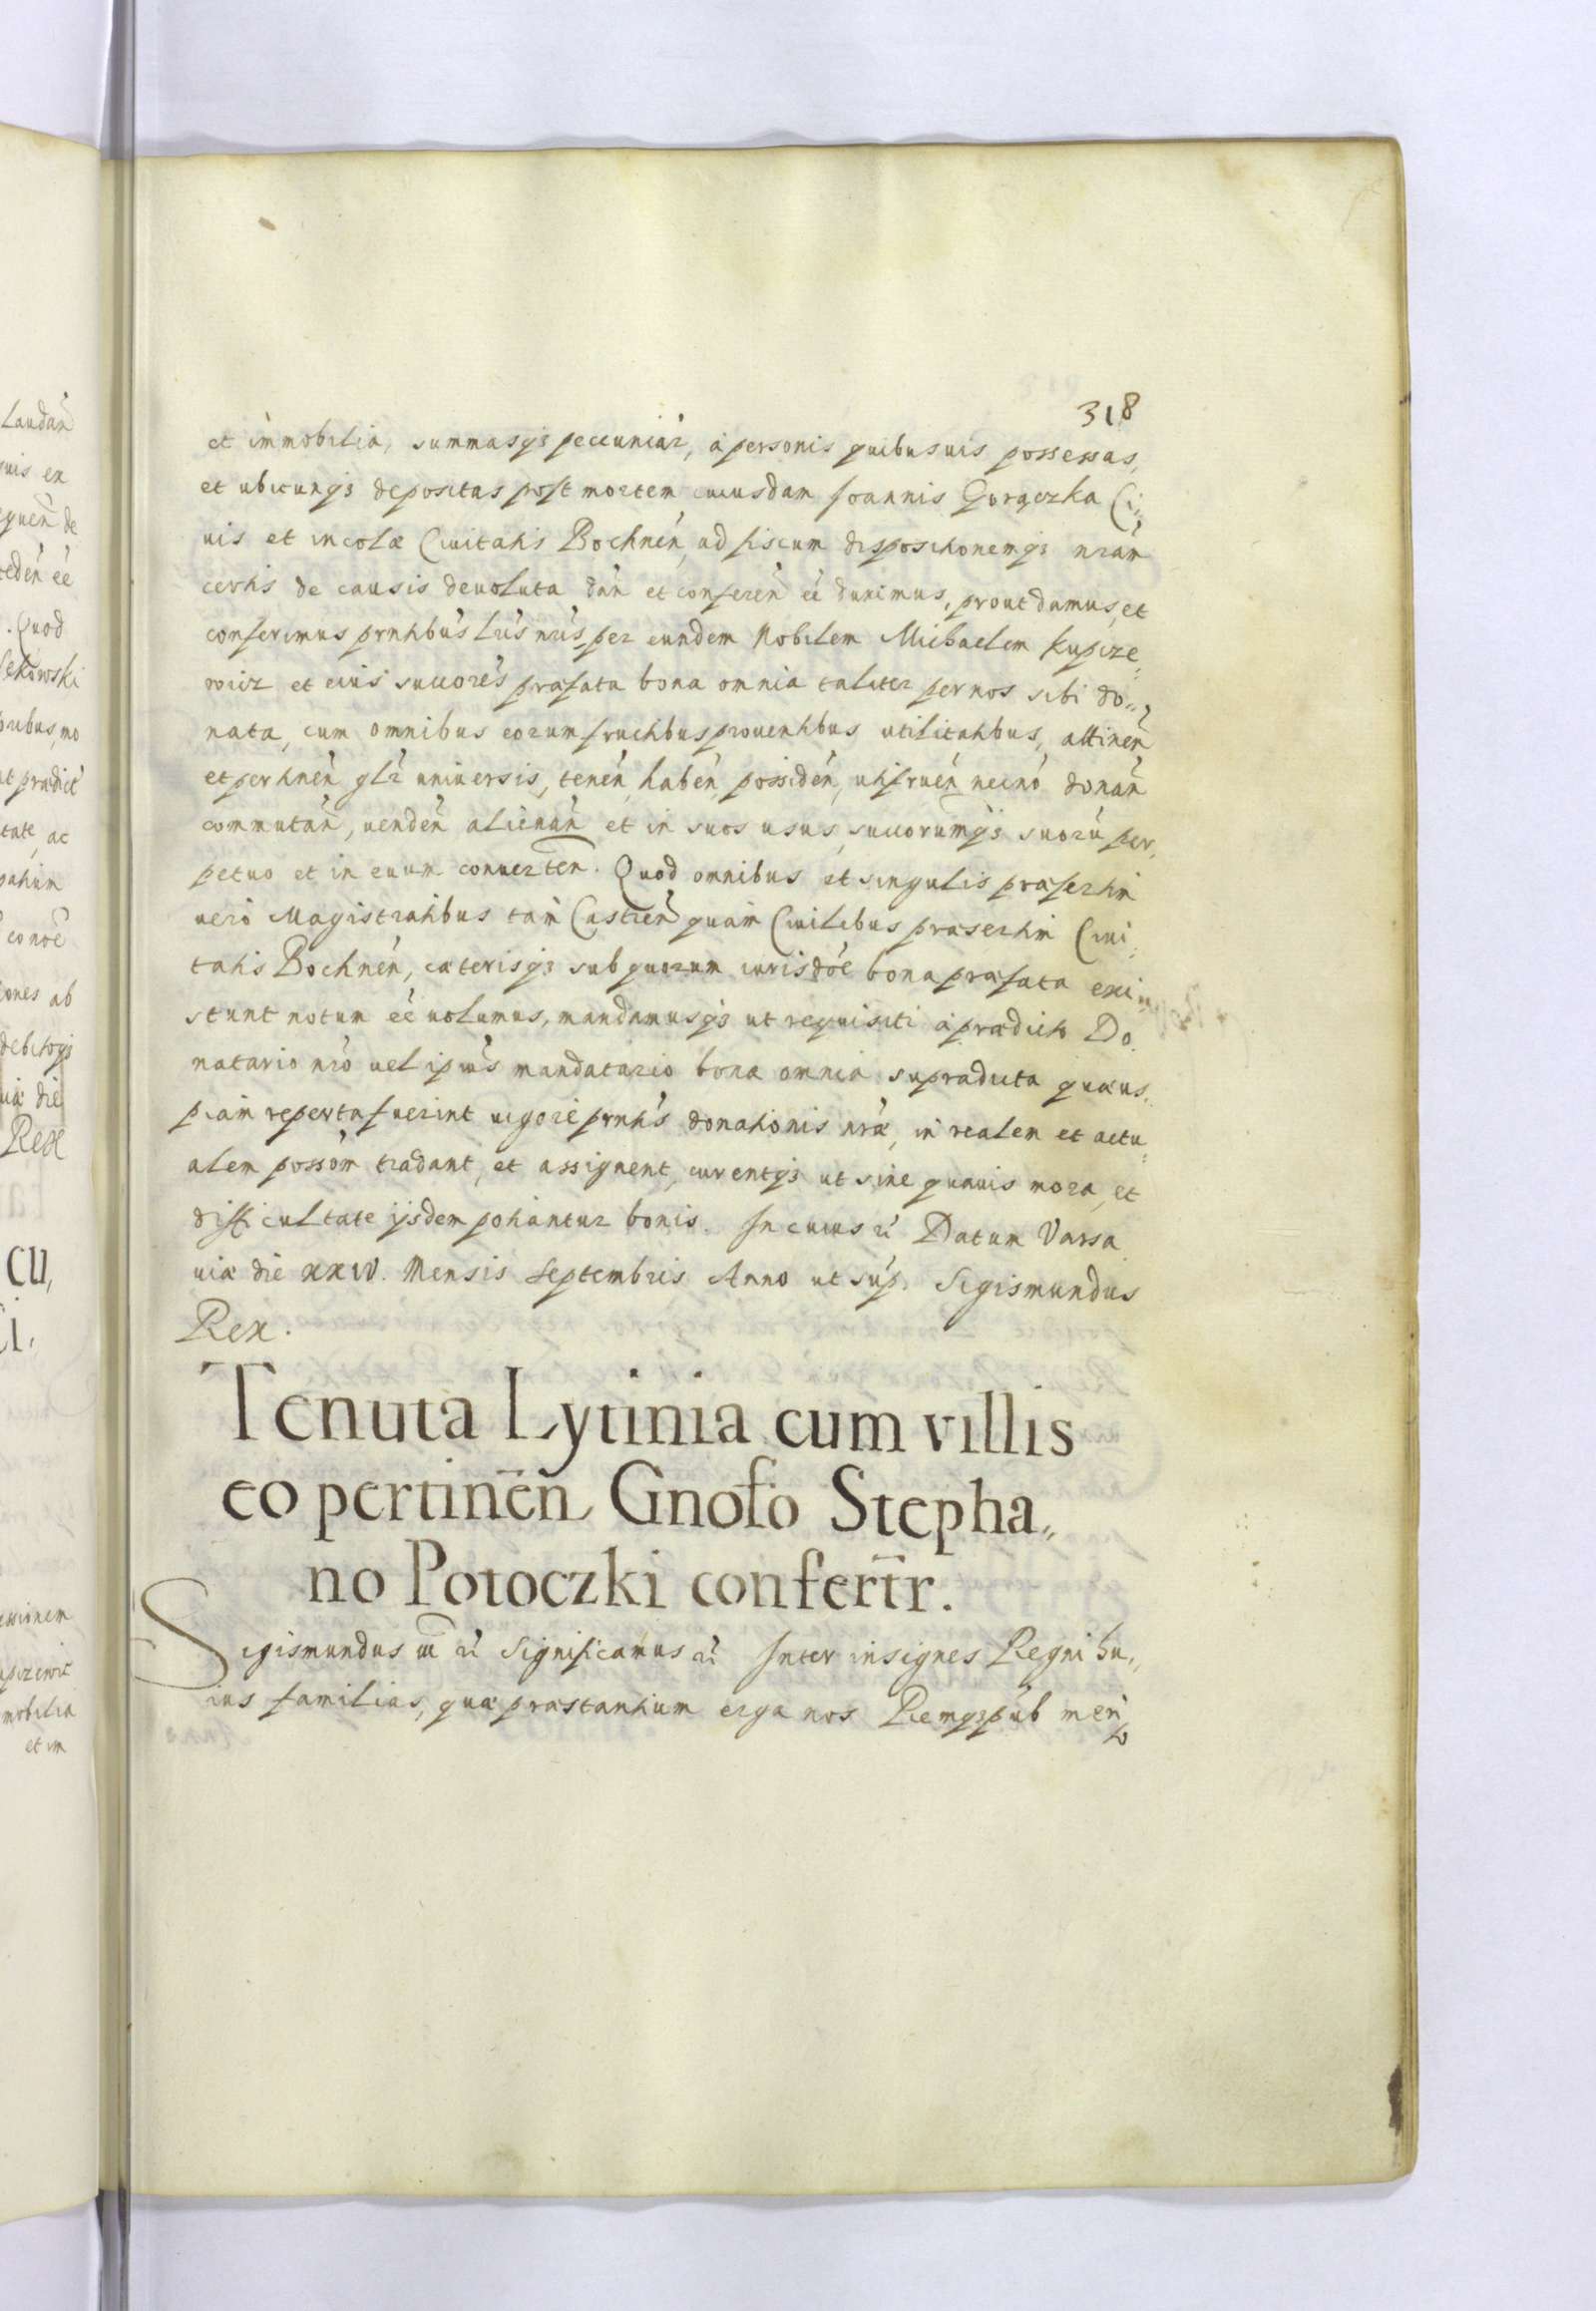 318
et immobilia, summasq3 pecuniar, à personis quibusuis possessas,
et ubicunq3 depositas post mortem cuiusdam Joannis Gorączka Ci
uis et incolæ Ciuitatis Bochnen̄, ad fiscum dispositionemq3 nram̄
certis de causis deuoluta dan̄ et conferen̄ eē duximus, prout damus, et
conferimus prntibus lris nris, per eundem Nobilem Michaelem Kupcze
wicz et eius succores præfata bona omnia taliter per nos sibi do
nata, cum omnibus eorum fructibus prouentibus utilitatibus, attinen̄
et pertinen̄ glr uniuersis, tenen̄, haben̄, possiden̄, utifruen̄ necnō donan̄
commutan̄, uenden̄ alienan̄ et in suos usus, succorumq3 suorū per
petuo et in euum conuerten̄. Quod omnibus et singulis præsertim
uerò Magistratibus tam̄ Castren̄ quàm Ciuilibus præsertim Ciui
tatis Bochnen̄, cæterisq3 sub quorum iurisdōe bona præfata exi
stunt notum eē uolumus, mandamusq3 ut requisiti à prædicto Do
natario nrō uel ipius mandatario bona omnia supradicta quæus
piam reperta fuerint uigore prntis donationis nræ, in realem et actu
alem possom̄ tradant, et assignent, curentq3 ut sine quauis mora, et
difficultate ijsdem potiantur bonis. In cuius rī Datum Varsa
uiæ die XXIV. Mensis Septembris Anno ut sup. Sigismundus
Rex.
Tenuta Lytinia cum villis
eo pertinen̄ Gnoso Stepha
no Potoczki confertr.
Sigismundus III rī Significamus rī Inter insignes Regni hu
ius familias, quæ præstantium erga nos Remq3pub meri
to